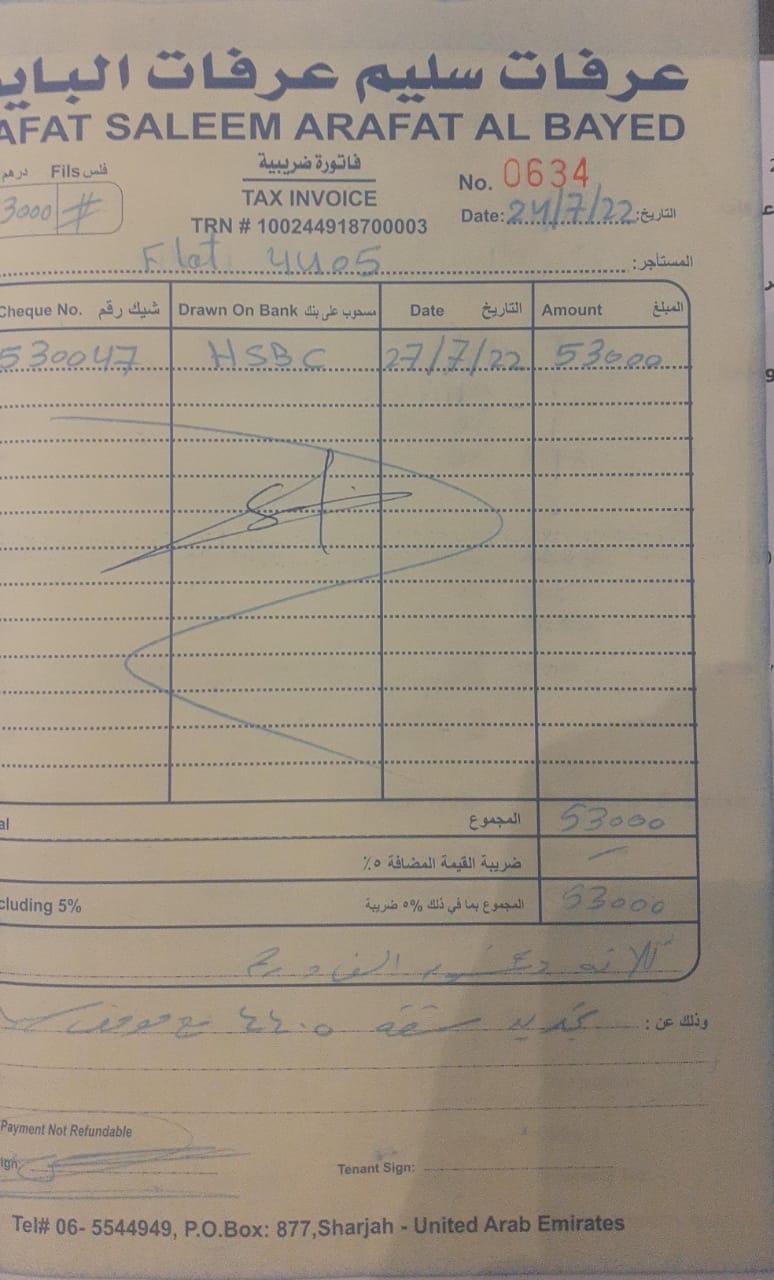 عرفات سليم عرفات الباي
AFAT SALEEM ARAFAT AL BAYED
فاتورة ضريبية
TAX INVOICE
TRN # 100244918700003
درهم Fils فلس
3000 #
No. 0634
Date: 24/7/22 التاريخ:
Flat 4405 المستأجر:
Cheque No. شيك رقم Drawn On Bank مسحوب على بنك Date التاريخ Amount المبلغ
530047 HSBC 27/7/22 53000
al المجموع 53000
ضريبة القيمة المضافة ٥٪ –
cluding 5% المجموع بما في ذلك ٥% ضريبة 53000
ثلاثة وخمسون الف درهم
وذلك عن: تجديد شقة ٤٤٠٥ مع موقف
Payment Not Refundable
ign:
Tenant Sign:
Tel# 06- 5544949, P.O.Box: 877,Sharjah - United Arab Emirates